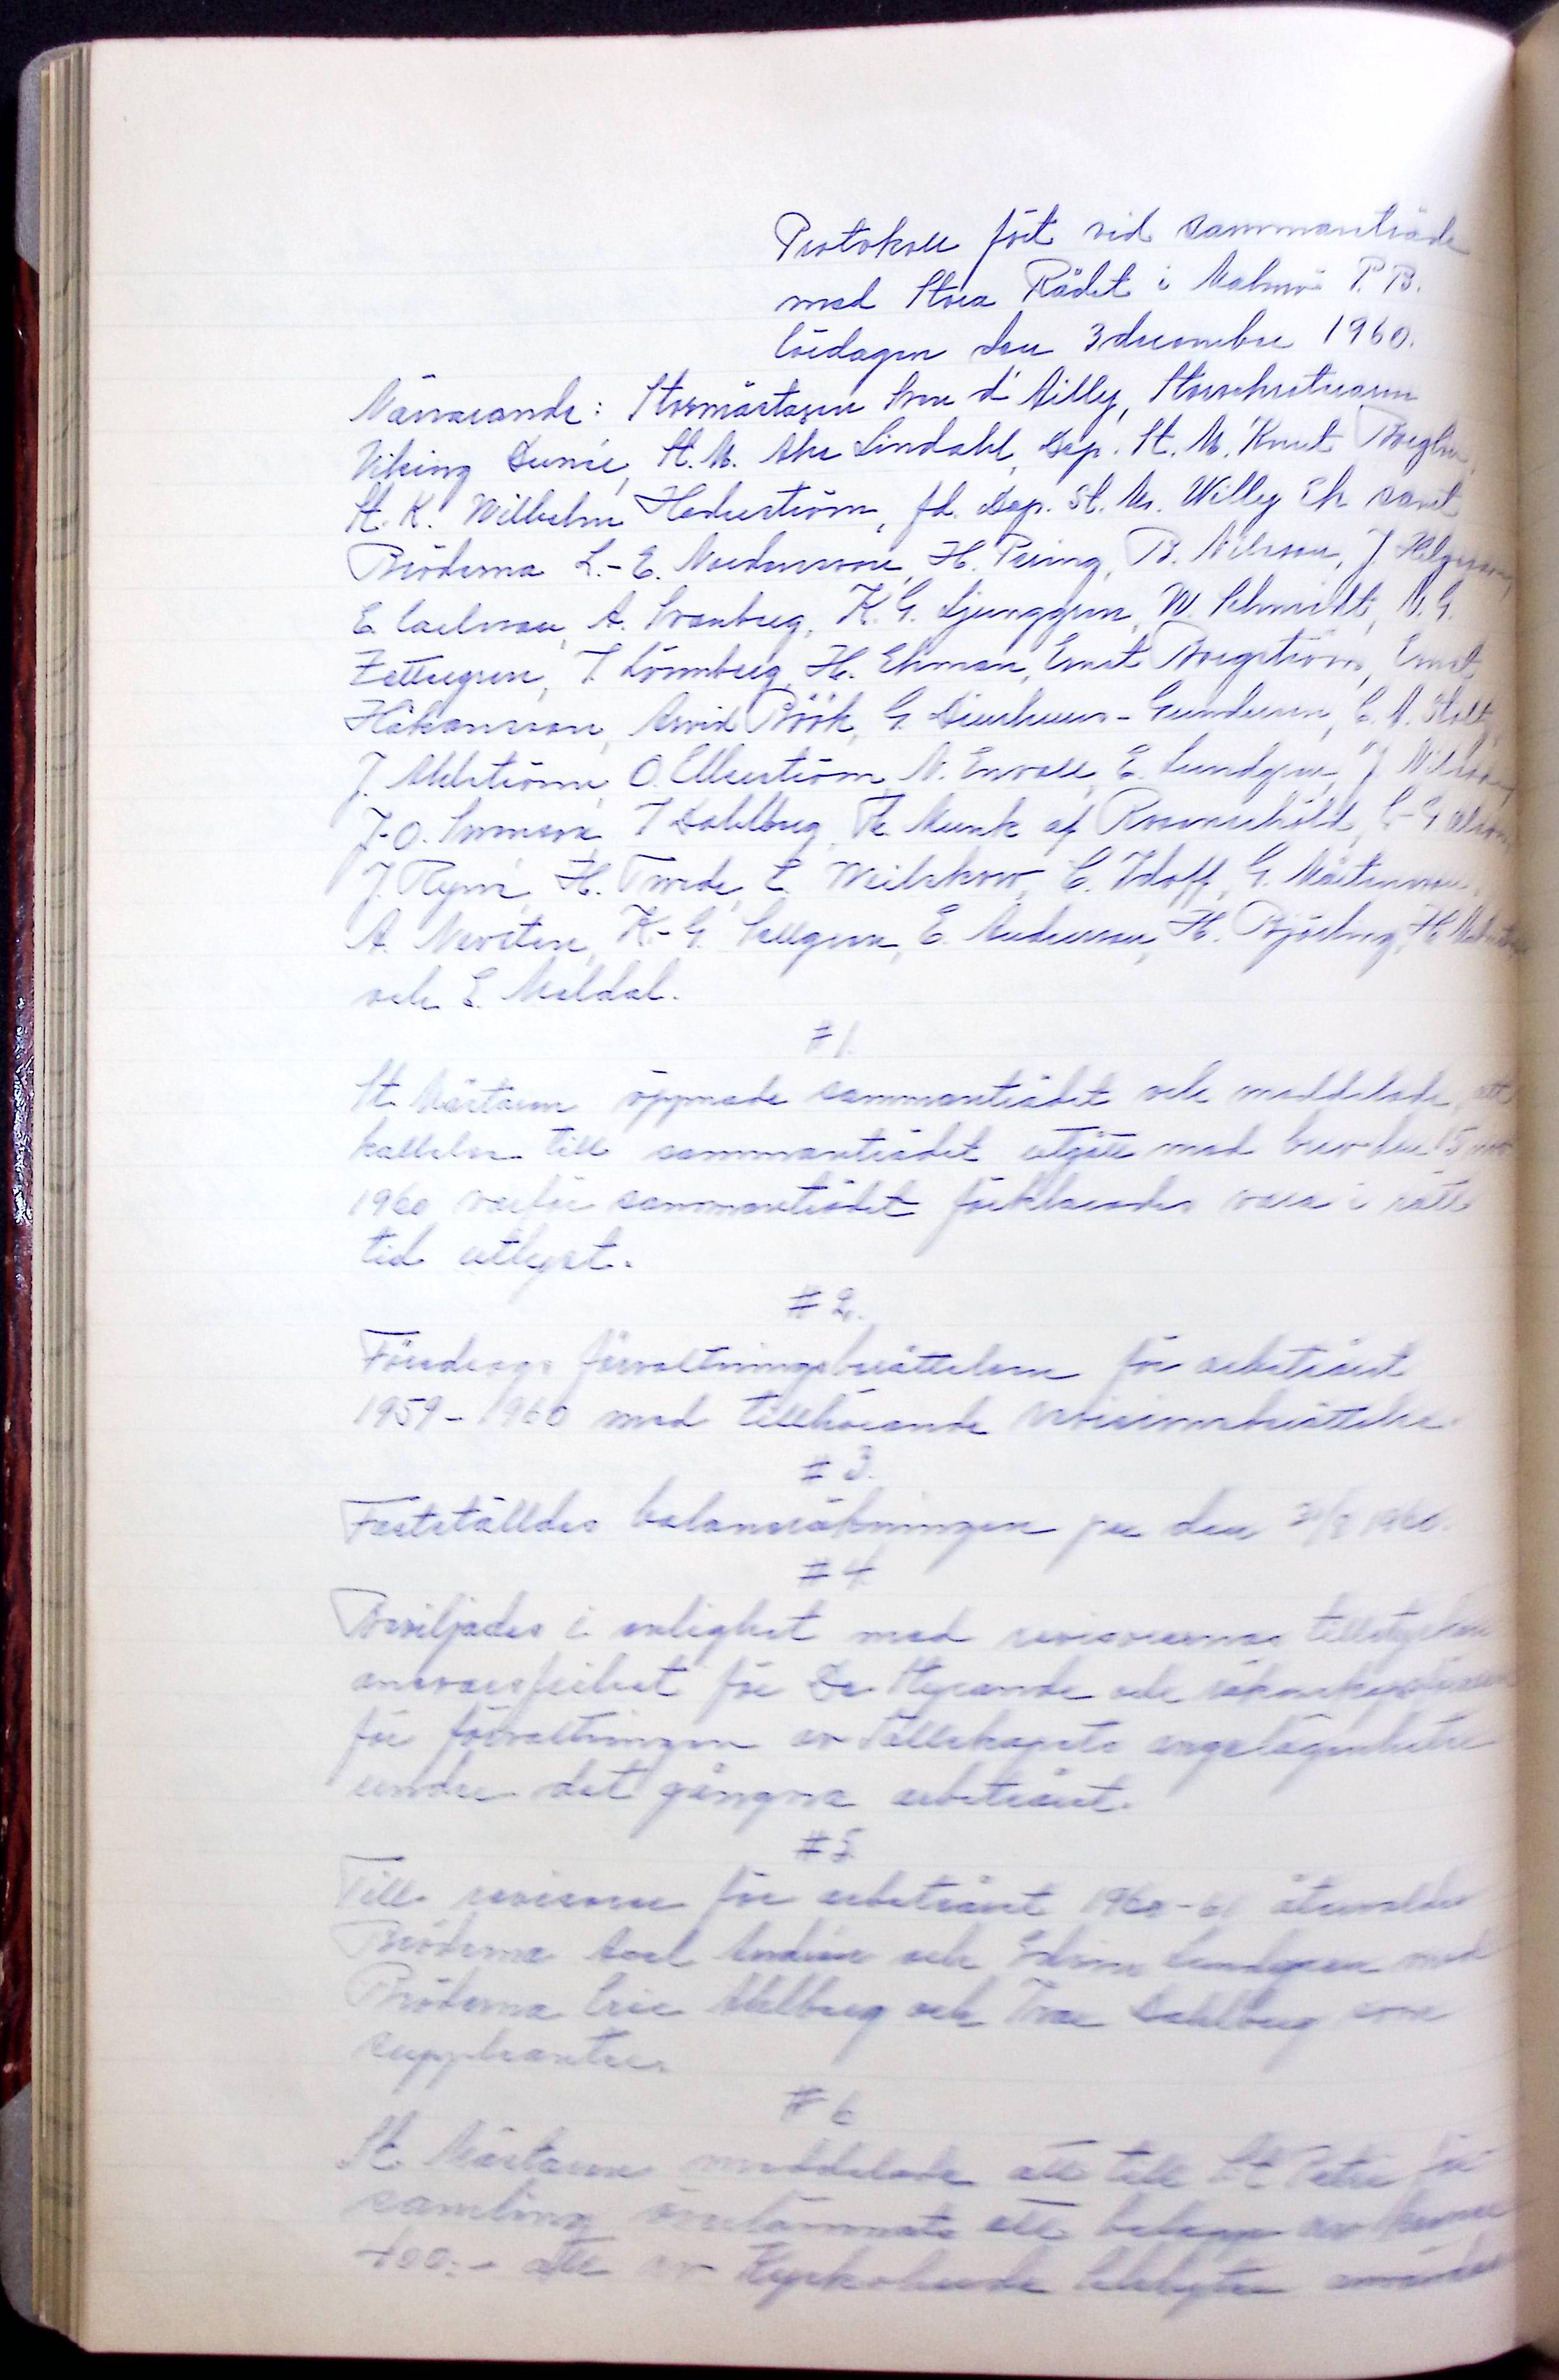 Protokoll fört vid sammanträde
med Stora Rådet i Malmö P. B.
lördagen den 3 december 1960.
Närvarande: Stormästaren Sven d'Ailly, Storsekreteraren
Viking Dunér, St. M. Åke Lindahl, Dep. St. M. Knut Borglin,
St. K. Wilhelm Hederström, fd. Dep. St. M. Willy Ek samt
Bröderna L.-E. Mårdensson, H. Pering, B. Nilsson, J. Helgesson,
E. Carlsson, A. Svanberg, K. G. Ljunggren, W. Schmidt, N. G.
Zettergren, T. Lönnberg, H. Ekman, Ernst Borgström, Ernst
Håkansson, Arvid Böök, G. Gundersen, C. A. Holt,
J. Ahlström, O. Ellerström, N. Envall, E. Lundgren, J. Nilsson,
J-O. Svensson, T Dahlberg, Th. Munk af Rosenschöld, C-G Olsson,
J. Ryné, H. Tvede, E. Weilskow, C. Idoff, G. Mårtensson,
A. Norsten, K-G. Sellgren, E. Andersson, H. Björling, H.
och E. Meldal.
# 1.
St. Mästaren öppnade sammanträdet och meddelade, att
kallelse till sammanträdet utgått med brev den 15 nov
1960 varför sammanträdet förklarades vara i rätt
tid utlyst.
# 2.
Föredrogs förvaltningsberättelsen för arbetsåret
1959-1960 med tillhörande revisionsberättelse.
# 3.
Fastställdes balansräkningen per den 31/8 1960.
# 4
Beviljades i enlighet med revisorernas tillstyrkan
ansvarsfrihet för De Styrande och
för förvaltningen av Sällskapets angelägenheter
under det gångna arbetsåret.
# 5.
Till revisorer för arbetsåret 1960-61 återvaldes
Bröderna Axel Andrén och Edvin Lundgren med
Bröderna Eric Ahlberg och Ivar Dahlberg som
suppleanter.
# 6
St. Mästaren meddelade att till S:t Petri för-
samling överlämnats ett belopp av kronor
400:- att av Kyrkoherde användas